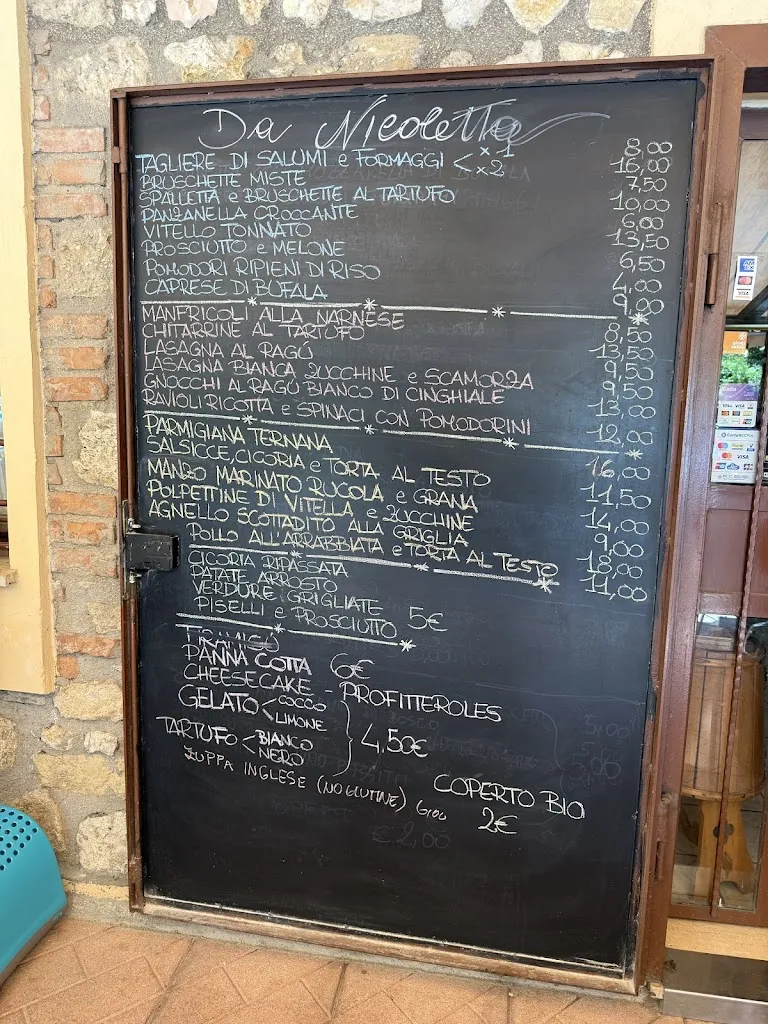 Da Nicoletta
TAGLIERE DI SALUMI e FORMAGGI < x 1 8,00
x2 16,00
BRUSCHETTE MISTE 7,50
SPALLETTA e BRUSCHETTE AL TARTUFO 10,00
PANZANELLA CROCCANTE 6,00
VITELLO TONNATO 13,50
PROSCIUTTO e MELONE 6,50
POMODORI RIPIENI DI RISO 4,00
CAPRESE DI BUFALA 9,00
MANFRICOLI ALLA NARNESE 8,50
CHITARRINE AL TARTUFO 13,50
LASAGNA AL RAGÚ 9,50
LASAGNA BIANCA ZUCCHINE e SCAMORZA 9,50
GNOCCHI AL RAGÚ BIANCO DI CINGHIALE 13,00
RAVIOLI RICOTTA e SPINACI CON POMODORINI 12,00
PARMIGIANA TERNANA 16,00
SALSICCE, CICORIA e TORTA AL TESTO 11,50
MANZO MARINATO RUCOLA e GRANA 14,00
POLPETTINE DI VITELLA e ZUCCHINE 9,00
AGNELLO SCOTTADITO ALLA GRIGLIA 18,00
POLLO ALL'ARRABBIATA e TORTA AL TESTO 11,00
CICORIA RIPASSATA
PATATE ARROSTO
VERDURE GRIGLIATE 5€
PISELLI e PROSCIUTTO
TIRAMISÚ
PANNA COTTA 6€
CHEESECAKE - PROFITTEROLES
GELATO < COCCO
LIMONE
TARTUFO < BIANCO
NERO
4,50€
ZUPPA INGLESE (NO GLUTINE)
COPERTO BIO
2€
€ 2,00